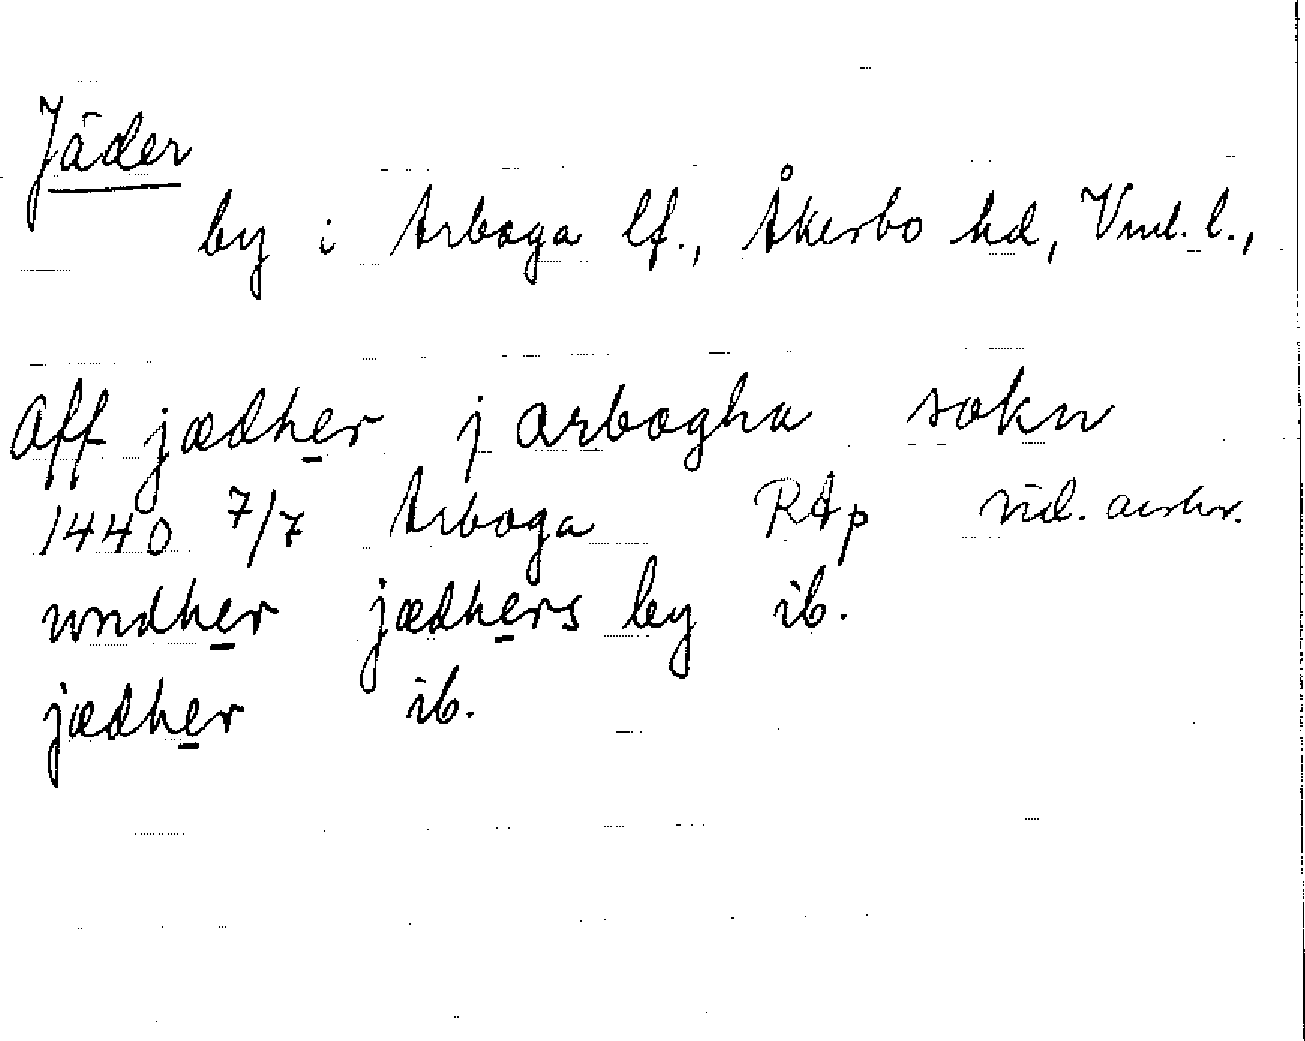 Jäder
by i Arboga lf., Åkerbo hd, Vml. l.,
Aff jædher j arbogha sokn
1440 7/7 Arboga RAp vid. avskr.
wndher jædhers by ib.
jædher ib.